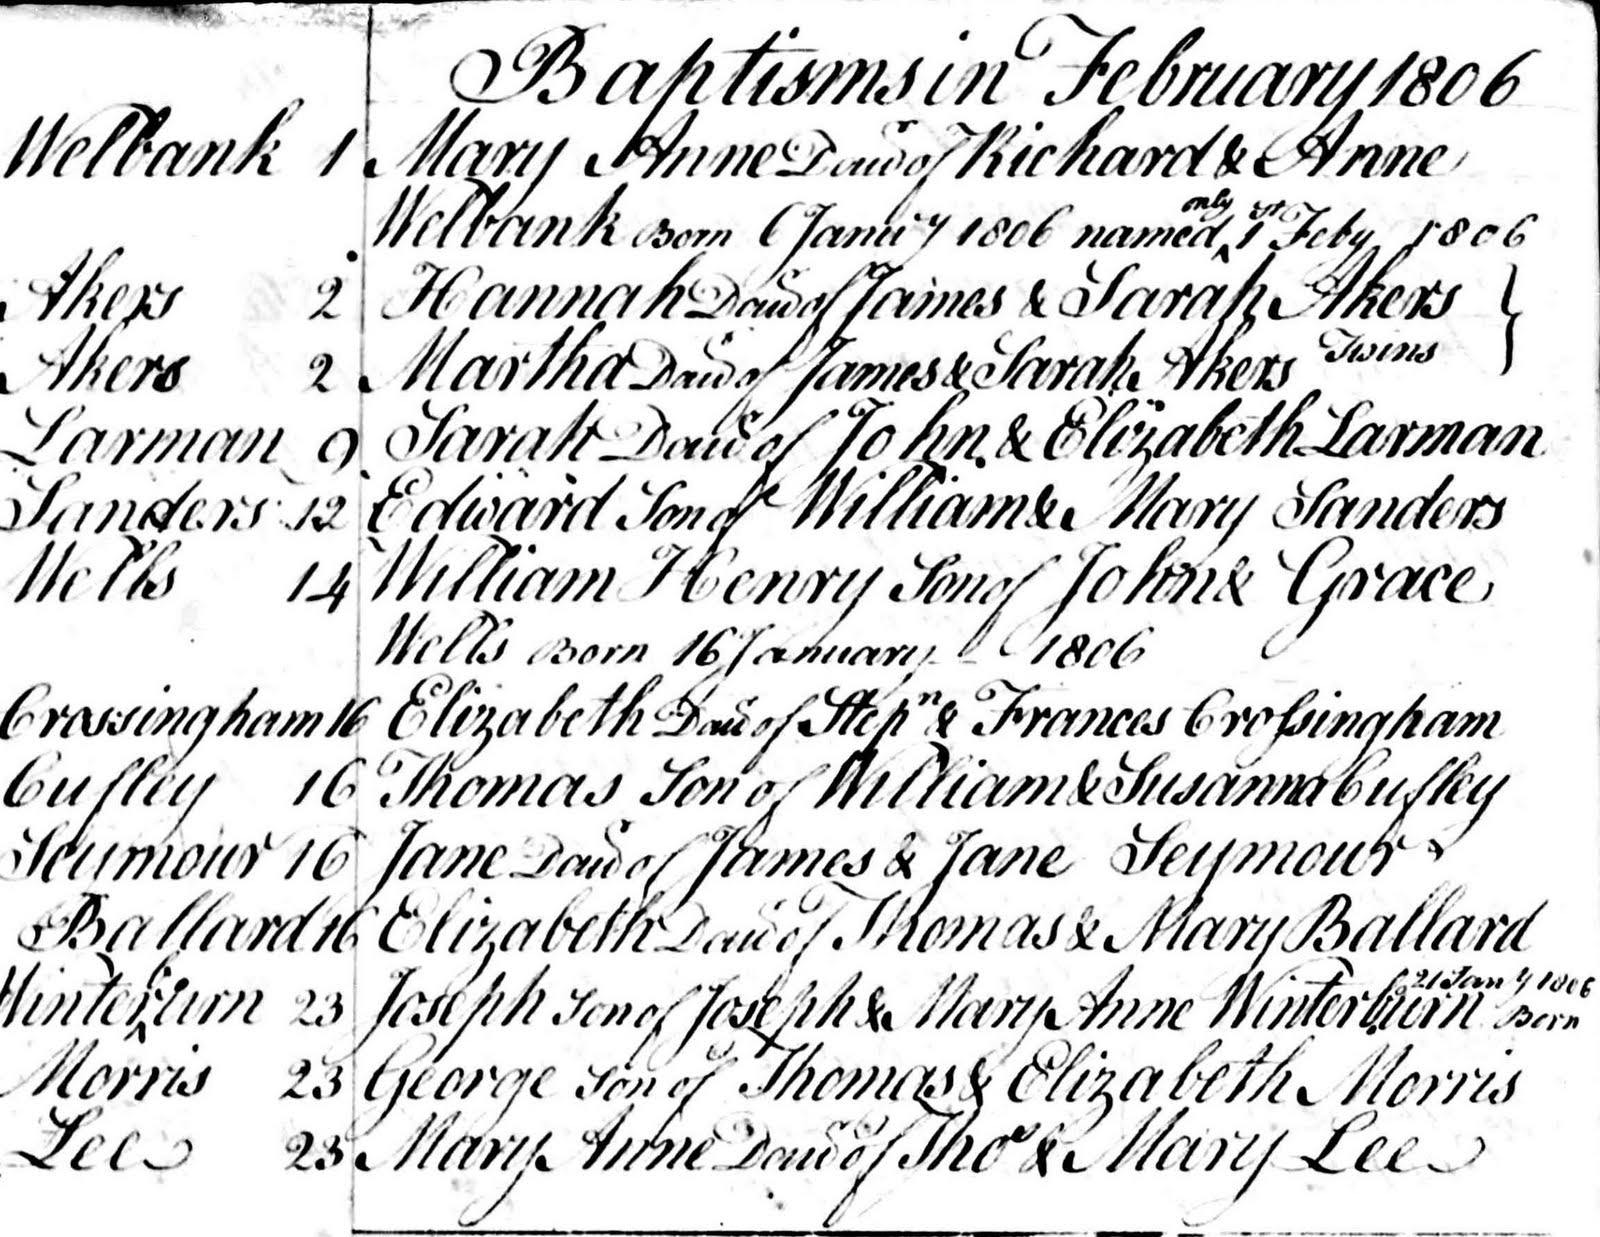 Baptisms in February 1806
Welbank 1 Mary Anne Dau of Richard & Anne
Welbank Born 6 Janu'y 1806 named only 1st Feby 1806
Akers 2 Hannah Dau of James & Sarah Akers
Akers 2 Martha Dau of James & Sarah Akers Twins
Larman 9 Sarah Dau of John & Elizabeth Larman
Sanders 12 Edward Son of William & Mary Sanders
Wells 14 William Henry Son of John & Grace
Wells Born 16 January 1806
Crossingham 16 Elizabeth Dau of Stepn & Frances Croſsingham
Cufley 16 Thomas Son of William & Susanna Cufley
Seymour 16 Jane Dau of James & Jane Seymour
Ballard 16 Elizabeth Dau of Thomas & Mary Ballard
Winterburn 23 Joseph Son of Joseph & Mary Anne Winterburn Born 21 Jany 1806
Morris 23 George Son of Thomas & Elizabeth Morris
Lee 23 Mary Anne Dau of Thos & Mary Lee